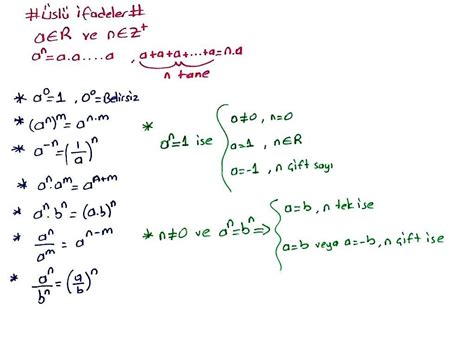 #Üslü ifadeler#
a∈R ve n∈Z⁺
aⁿ=a.a....a , a+a+a+...+a=n.a
n tane
* a⁰=1 , 0⁰=Belirsiz
* (aⁿ)ᵐ=aⁿ·ᵐ
* a⁻ⁿ=(1/a)ⁿ
* aⁿ.aᵐ=aⁿ⁺ᵐ
* aⁿ.bⁿ=(a.b)ⁿ
* aⁿ/aᵐ=aⁿ⁻ᵐ
* aⁿ/bⁿ=(a/b)ⁿ
* aⁿ=1 ise
a≠0, n=0
a=1, n∈R
a=-1, n çift sayı
* n≠0 ve aⁿ=bⁿ⇒
a=b, n tek ise
a=b veya a=-b, n çift ise